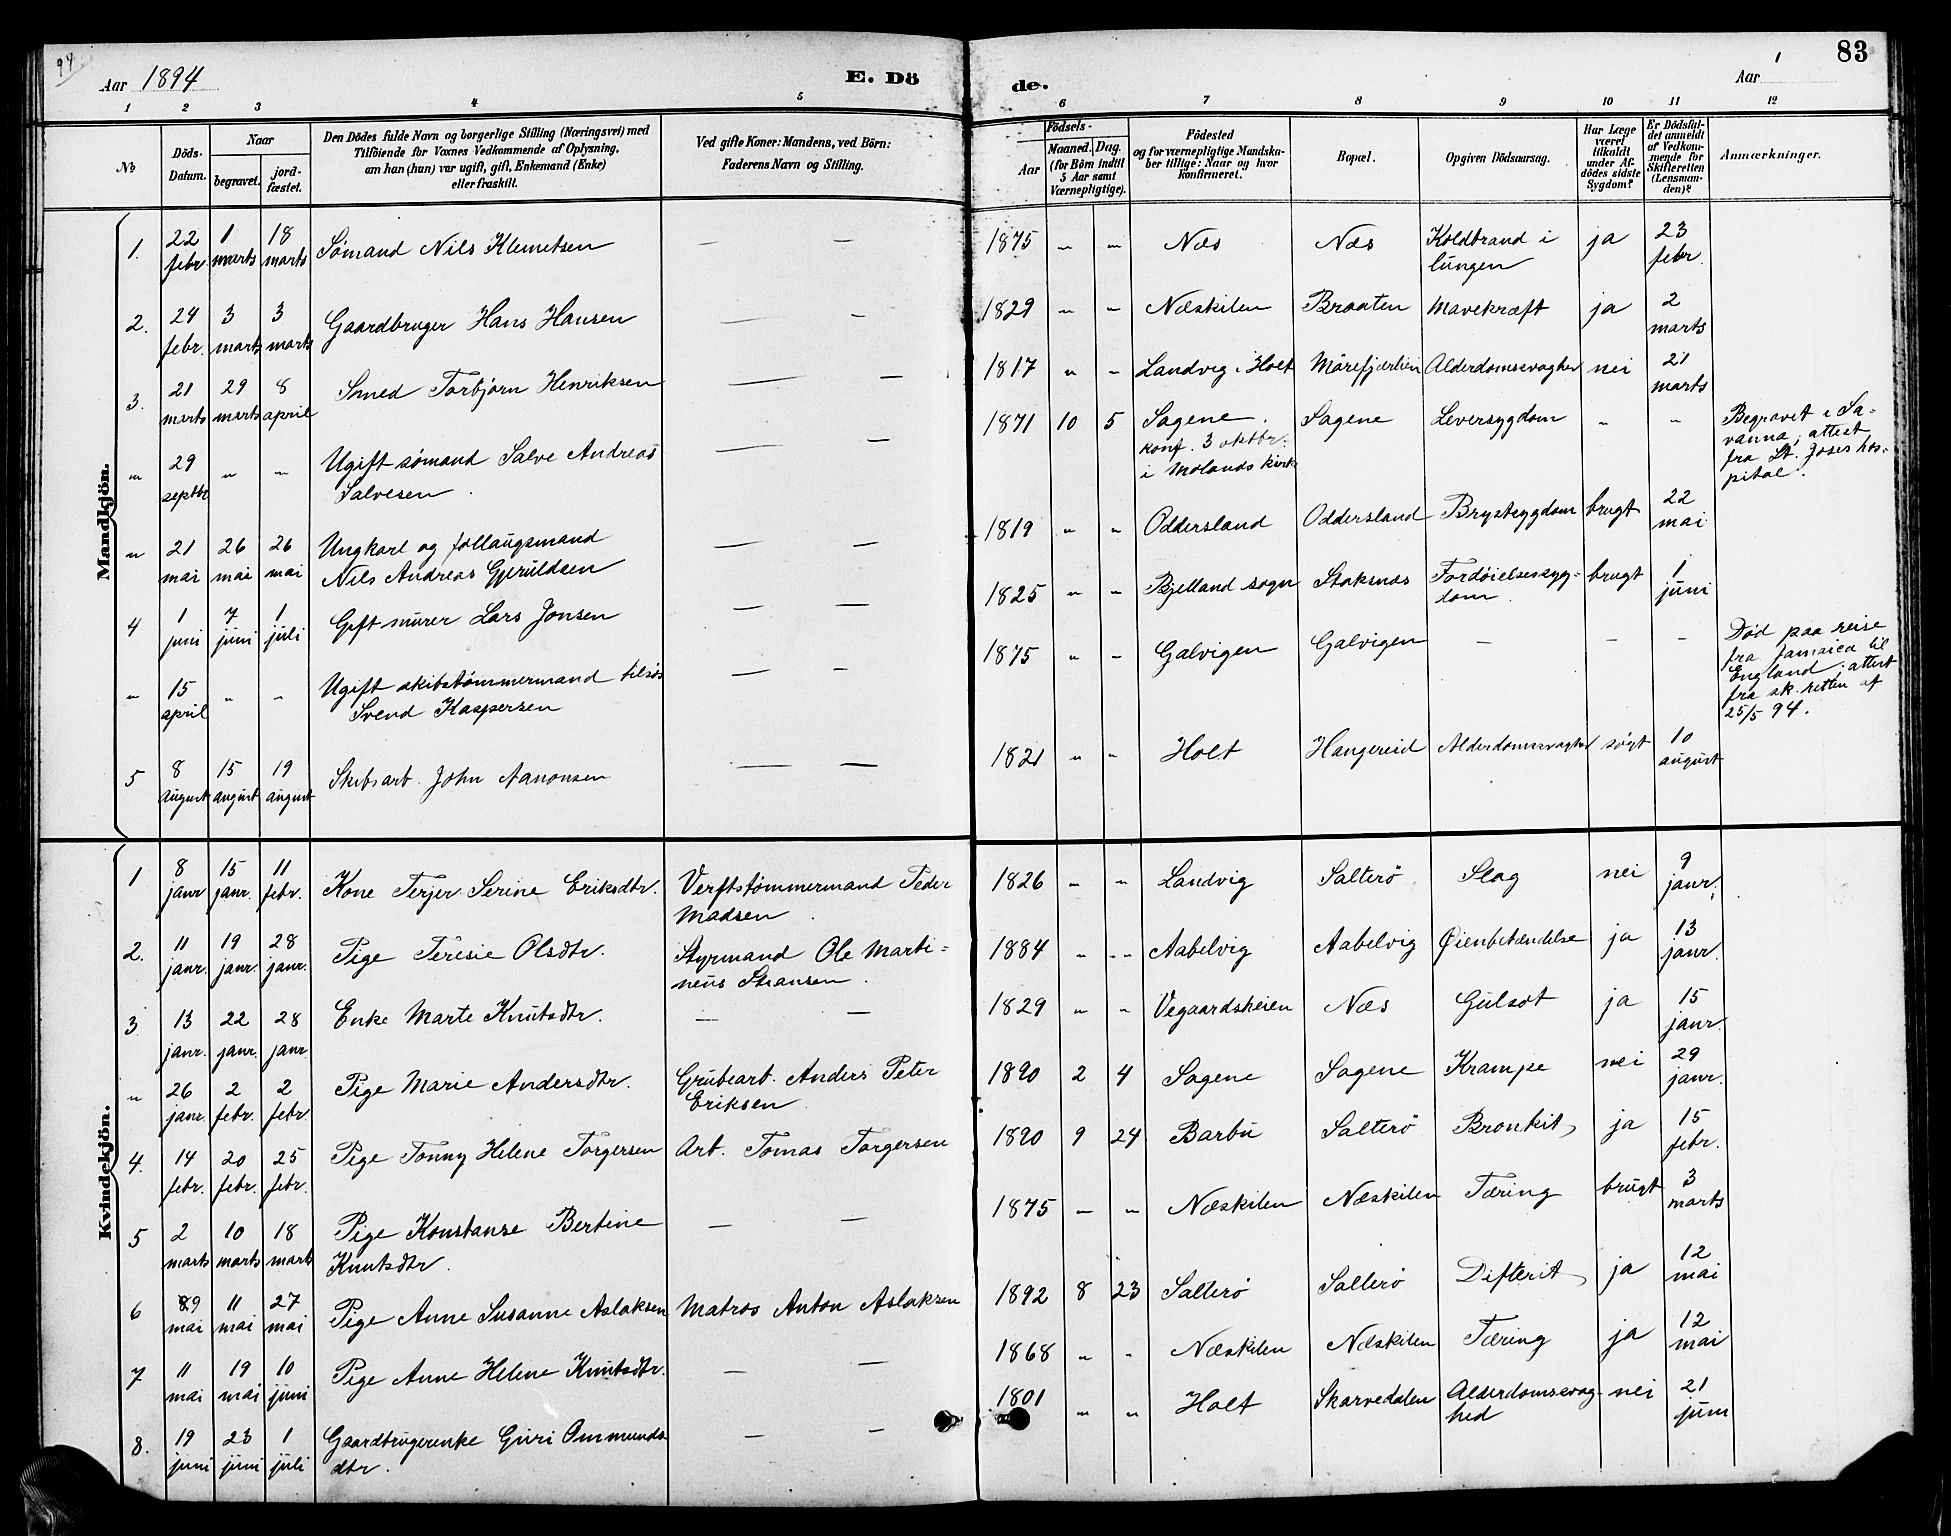 94
Aar 1894
E. Dö
de.
Aar 1
83
1 2 3 4 5 6 7 8 9 10 11 12
No
Döds-
Datum.
Naar
begravet.
jord-
fæstet.
Den Dödes fulde Navn og borgerlige Stilling (Næringsvei) med
Tilföiende for Voxnes Vedkommende af Oplysning,
om han (hun) var ugift, gift, Enkemand (Enke)
eller fraskilt.
Ved gifte Koner: Mandens, ved Börn:
Faderens Navn og Stilling.
Födsels-
Aar
Maaned. Dag.
(for Börn indtil
5 Aar samt
Værnepligtige).
Födested
og for værnepligtige Mandska-
ber tillige: Naar og hvor
konfirmeret.
Bopæl.
Opgiven Dödsaarsag.
Har Læge
været
tilkaldt
under Af-
dödes sidste
Sygdom?
Er Dödsfal-
det anmeldt
af Vedkom-
mende for
Skifteretten
(Lensman-
den)?
Anmærkninger.
Mandkjön.
1. 22 febr. 1 marts 18 marts Sømand Nils Klemetsen — — 1875 " " Næs Næs Koldbrand i
lungen ja 23 febr.
2. 24 febr. 3 marts 3 marts Gaardbruger Hans Hansen — — 1829 " " Næskilen Braaten Mavekræft ja 2 marts
3. 21 marts 29 marts 8 april Smed Torbjørn Henriksen — — 1817 " " Landvig i Holt Mörefjærlien Alderdomssvaghed nei 21 marts
" 29 septbr " " Ugift sømand Salve Andreas
Salvesen — — 1871 10 5 Sagene.
konf. 3 oktbr.
i Molands kirke Sagene Leversygdom " " Begravet i Sa-
vanna, attest
fra St. Joses hos-
pital.
" 21 mai 26 mai 26 mai Ungkarl og follaugsmand
Nils Andreas Gjeruldsen — — 1819 " " Oddersland Oddersland Brystsygdom brugt 22 mai
4 1 juni 7 juni 1 juli Gift murer Lars Jonsen — — 1825 " " Bjelland sogn Staksnæs Fordøielsessyg-
dom. brugt 1 juni
" 15 april " " Ugift skibstømmermand tilsøs
Svend Kaspersen — — 1875 " " Galvigen Galvigen — — — Død paa reise
fra Jamaica til
England; attest
fra sk.retten af
25/5 94.
5 8 august 15 august 19 august Skibsarb. John Aanonsen — — 1821 " " Holt Hangereid Alderdomssvaghed søgt 10 august
Kvindekjön.
1 8 janr 15 janr. 11 febr. Kone Terjer Serine Eriksdtr. Verftstømmermand Peder
Madsen. 1826 " " Landvig Salterö Slag nei 9 janr.
2. 11 janr. 19 janr. 28 janr. Pige Teresie Olsdtr. Styrmand Ole Marti-
neus Stiansen. 1884 " " Aabelvig Aabelvig Øienbetændelse ja 13 janr.
3 13 janr. 22 janr. 28 janr. Enke Marte Knutsdtr. — — 1829 " " Vegaardsheien Næs Gulsot ja 15 janr.
" 26 janr. 2 febr. 2 febr. Pige Marie Andersdtr. Grubearb. Anders Peter
Eriksen. 1890 2 4 Sagene Sagene Krampe nei 29 janr.
4. 14 febr. 20 febr. 25 febr. Pige Tonny Helene Torgersen Arb. Tomas Torgersen 1890 9 24 Barbu Salterö Bronkit ja 15 febr.
5 2 marts 10 marts 18 marts Pige Konstanse Bertine
Knutsdtr. — — 1875 " " Næskilen Næskilen Tæring brugt 3 marts
6 9 mai 11 mai 27 mai Pige Anne Susanne Aslaksen Matros Anton Aslaksen 1892 8 23 Salterö Salterö Difterit ja 12 mai
7 11 mai 19 mai 10 juni Pige Anne Helene Knutsdtr. — — 1868 " " Næskilen Næskilen Tæring ja 12 mai
8. 19 juni 23 juni 1 juli Gaardbrugerenke Guri Ommunds
dtr. — — 1801 " " Holt Skarvedalen Alderdomssvag-
hed nei 21 juni